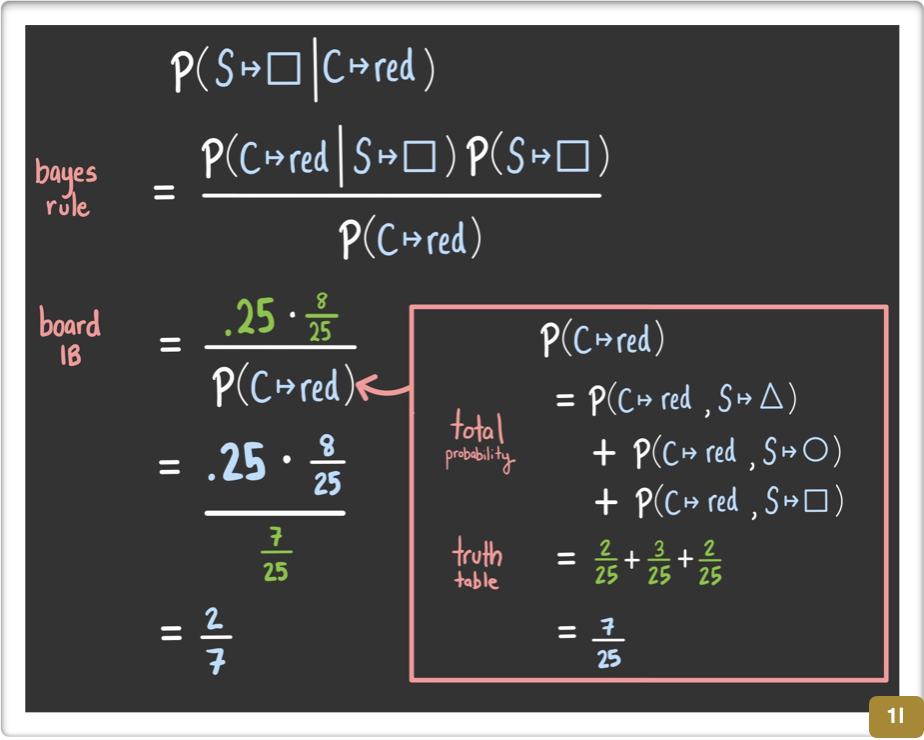 P(S↦□|C↦red)
bayes rule = P(C↦red|S↦□) P(S↦□) / P(C↦red)
board 1B = .25 · 8/25 / P(C↦red)
= .25 · 8/25 / 7/25
= 2/7
P(C↦red)
total probability = P(C↦red , S↦△)
+ P(C↦red , S↦○)
+ P(C↦red , S↦□)
truth table = 2/25 + 3/25 + 2/25
= 7/25
1I